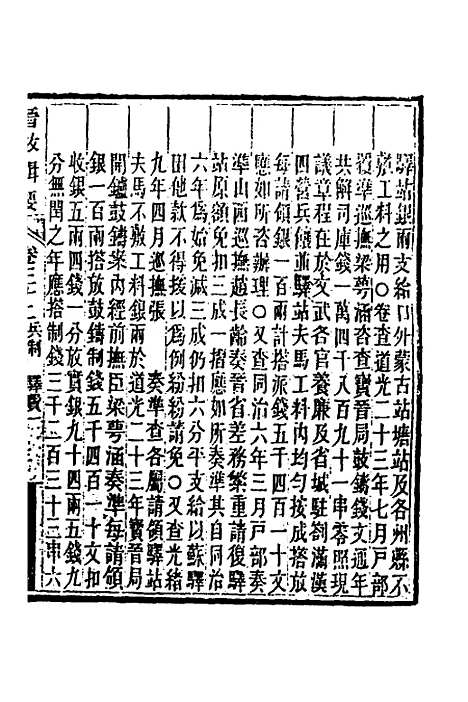 驛站銀兩支給口外蒙古站塘站及各州縣不
敷工料之用○卷查道光二十三年七月戶部
覆準巡撫梁萼涵咨查寶晉局鼓鑄錢文通年
共解司庫錢一萬四千八百九十一串零照現
議章程在於文武各官養廉及省城駐劄滿漢
四營兵餉並驛站夫馬工料內均勻按成搭放
每請領銀一百兩計搭派錢五千四百一十文
應如所咨辦理○又查同治六年三月戶部奏
準山西巡撫趙長齡奏晉省差務繁重請復驛
站原領免扣二成一摺應如所奏準其自同治
六年爲始免減三成仍扣六分平支給以蘇驛
困他款不得援以爲例紛紛請免○又查光緒
九年四月巡撫張 奏準查各屬請領驛站
夫馬不敷工料銀兩於道光二十三年寶晉局
開鑪鼓鑄案內經前撫臣梁萼涵奏準每請領
銀一百兩搭放鼓鑄制錢五千四百一十文扣
收銀五兩四錢一分放實銀九十四兩五錢九
分無閏之年應搭制錢三千二百三十三串六
晉政輯要 卷三十二 兵制 驛費一